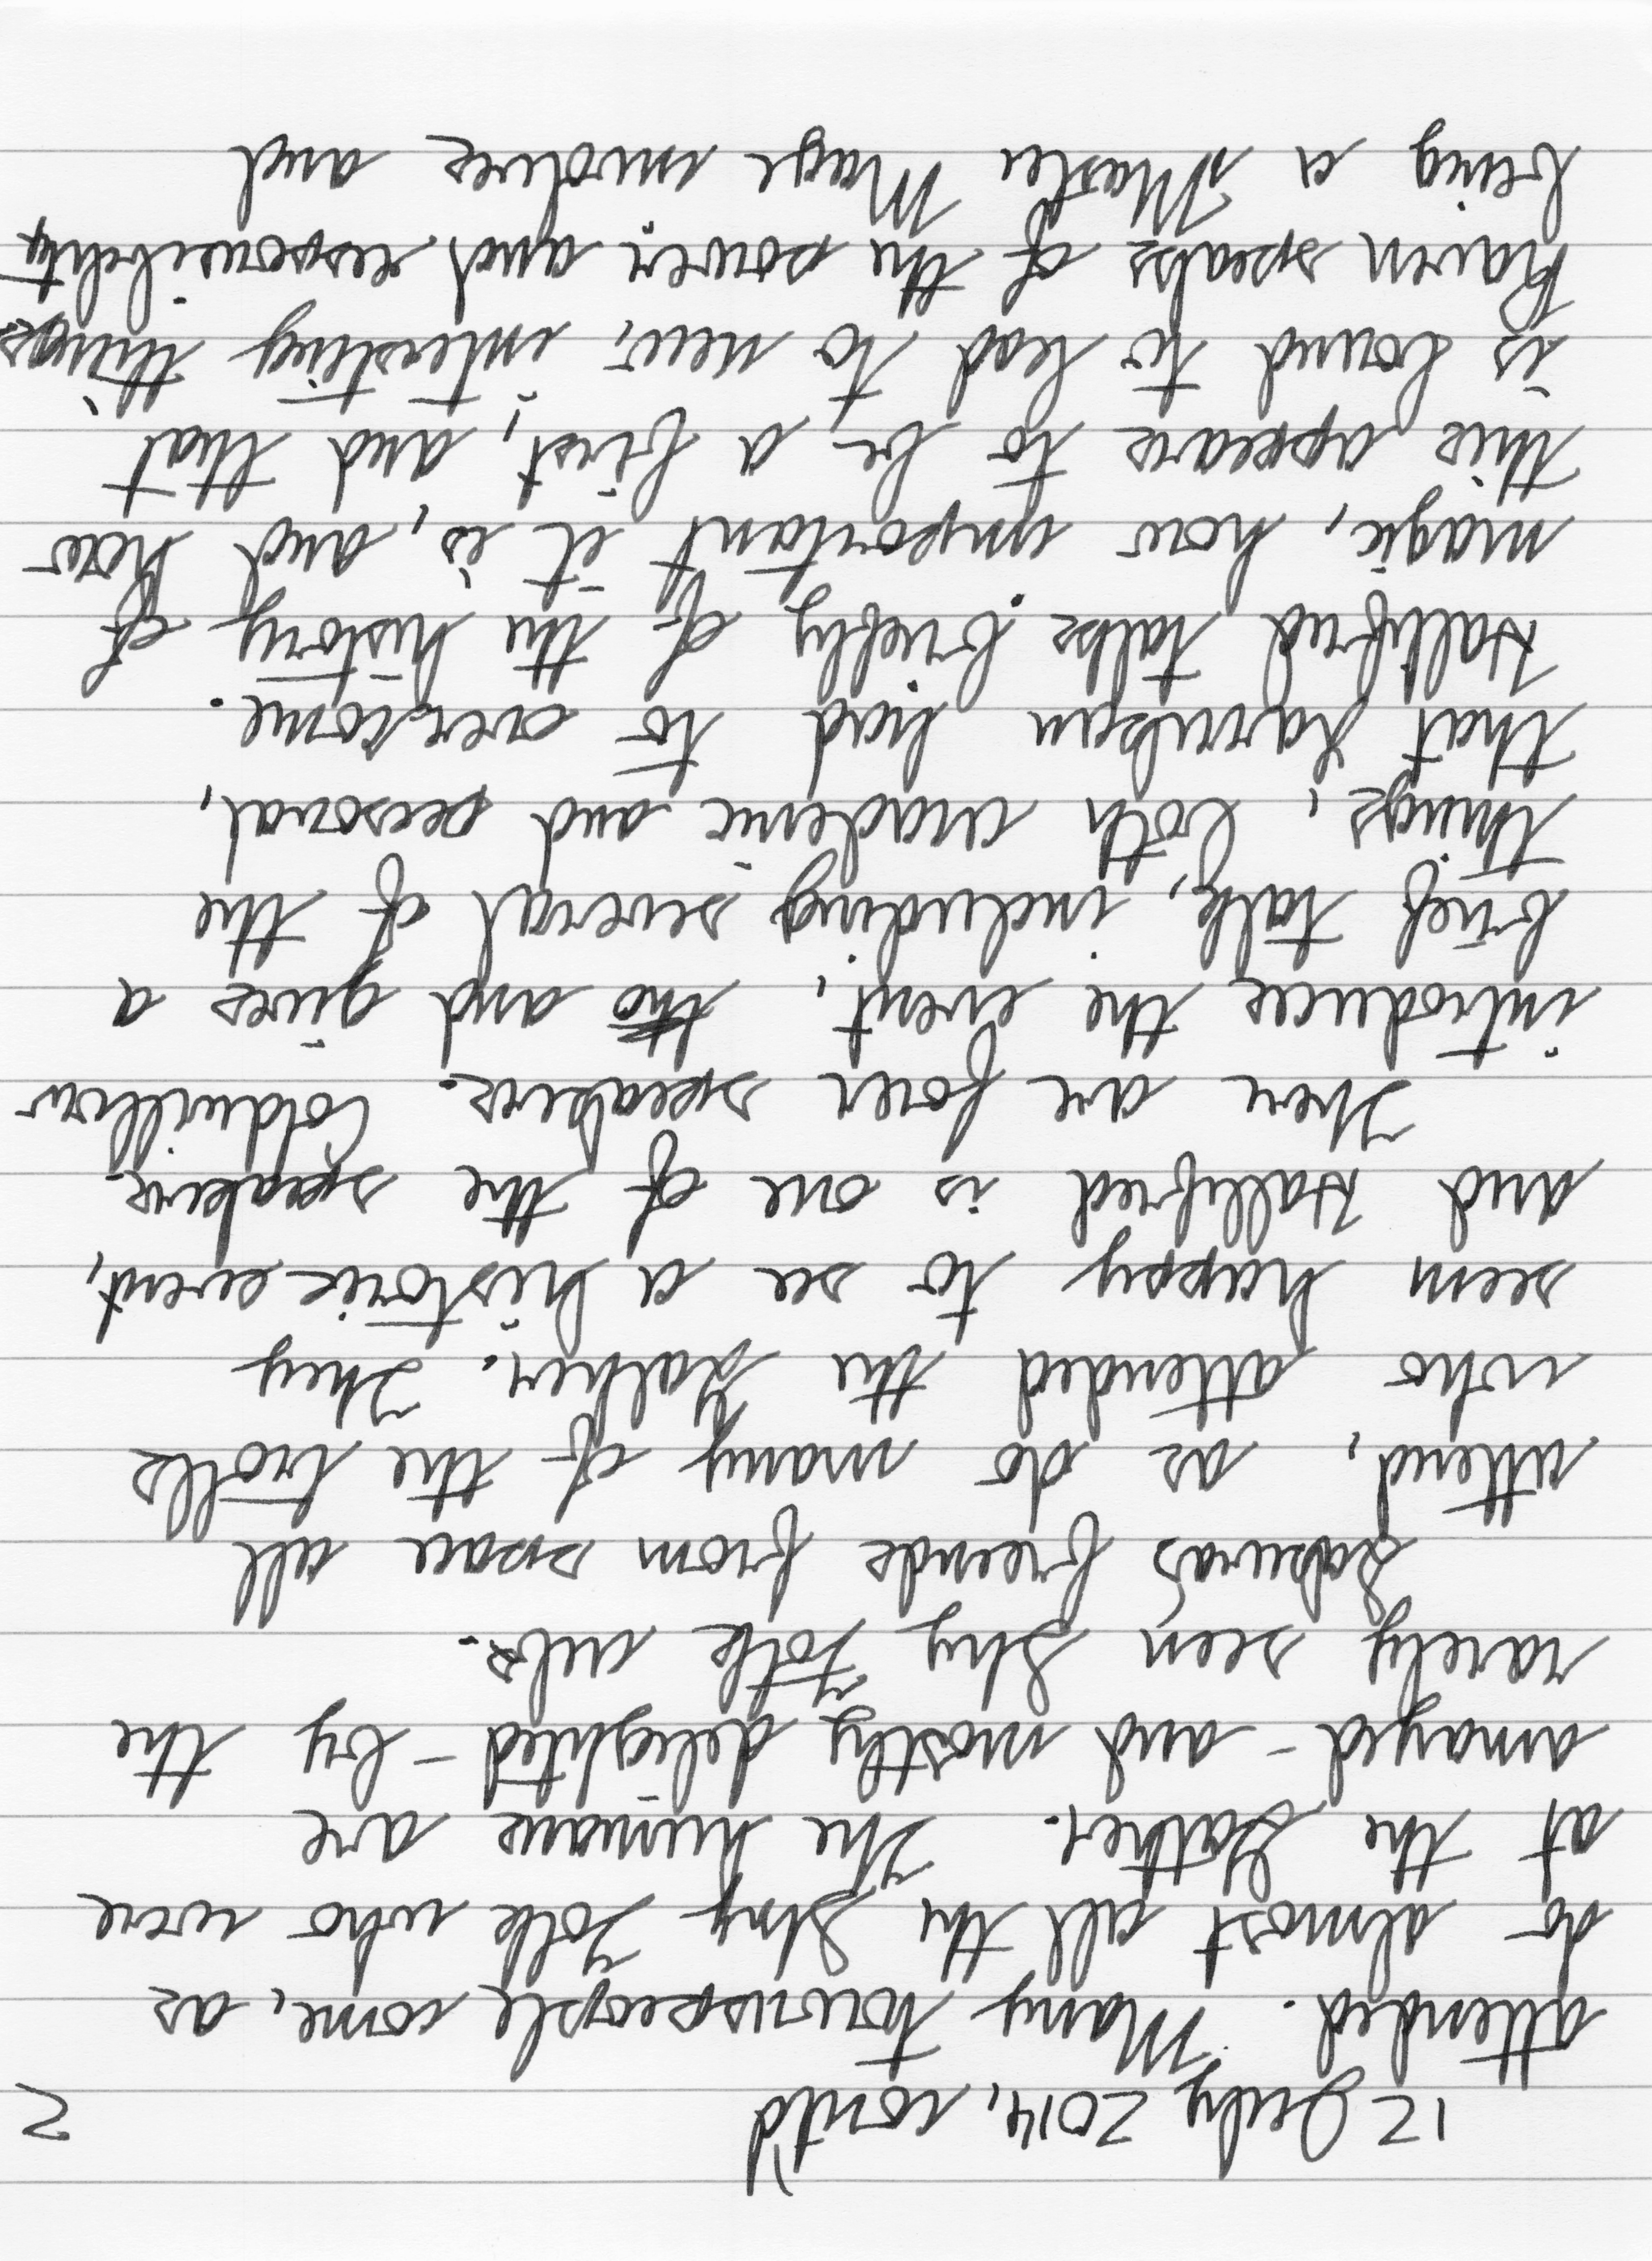 12 July 2014, cont'd 2
attended. Many townspeople come, as
do almost all the Shy Folk who were
at the Gather. The humans are
amazed - and mostly delighted - by the
rarely seen Shy Folk cubs.
Sakura's friends from space all
attend, as do many of the trolls
who attended the Gather. They
seem happy to see a historic event,
and Hallifred is one of the speakers.
There are four speakers. Coldwillow
introduces the event, and gives a
brief talk, including several of the
things, both academic and personal,
that had to overcome.
Hallifred talks briefly of the history of
magic, how important it is, and how
this appears to be a first, and that
is bound to lead to new, interesting things.
Raven speaks of the power and responsibility
being a Master Mage involves and